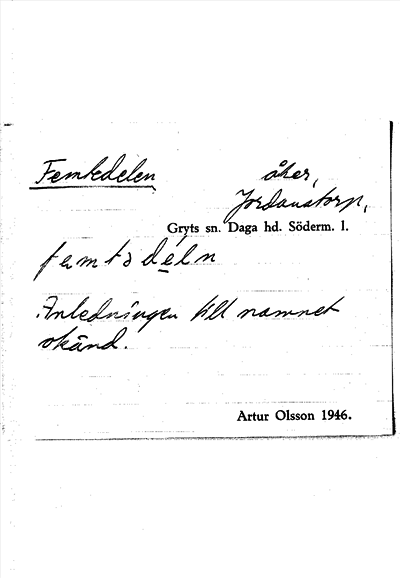 Femtedelen åker,
Jordanstorp,
Gryts sn. Daga hd. Söderm. l.
fæmtədéln
Anledningen till namnet
okänd.
Artur Olsson 1946.